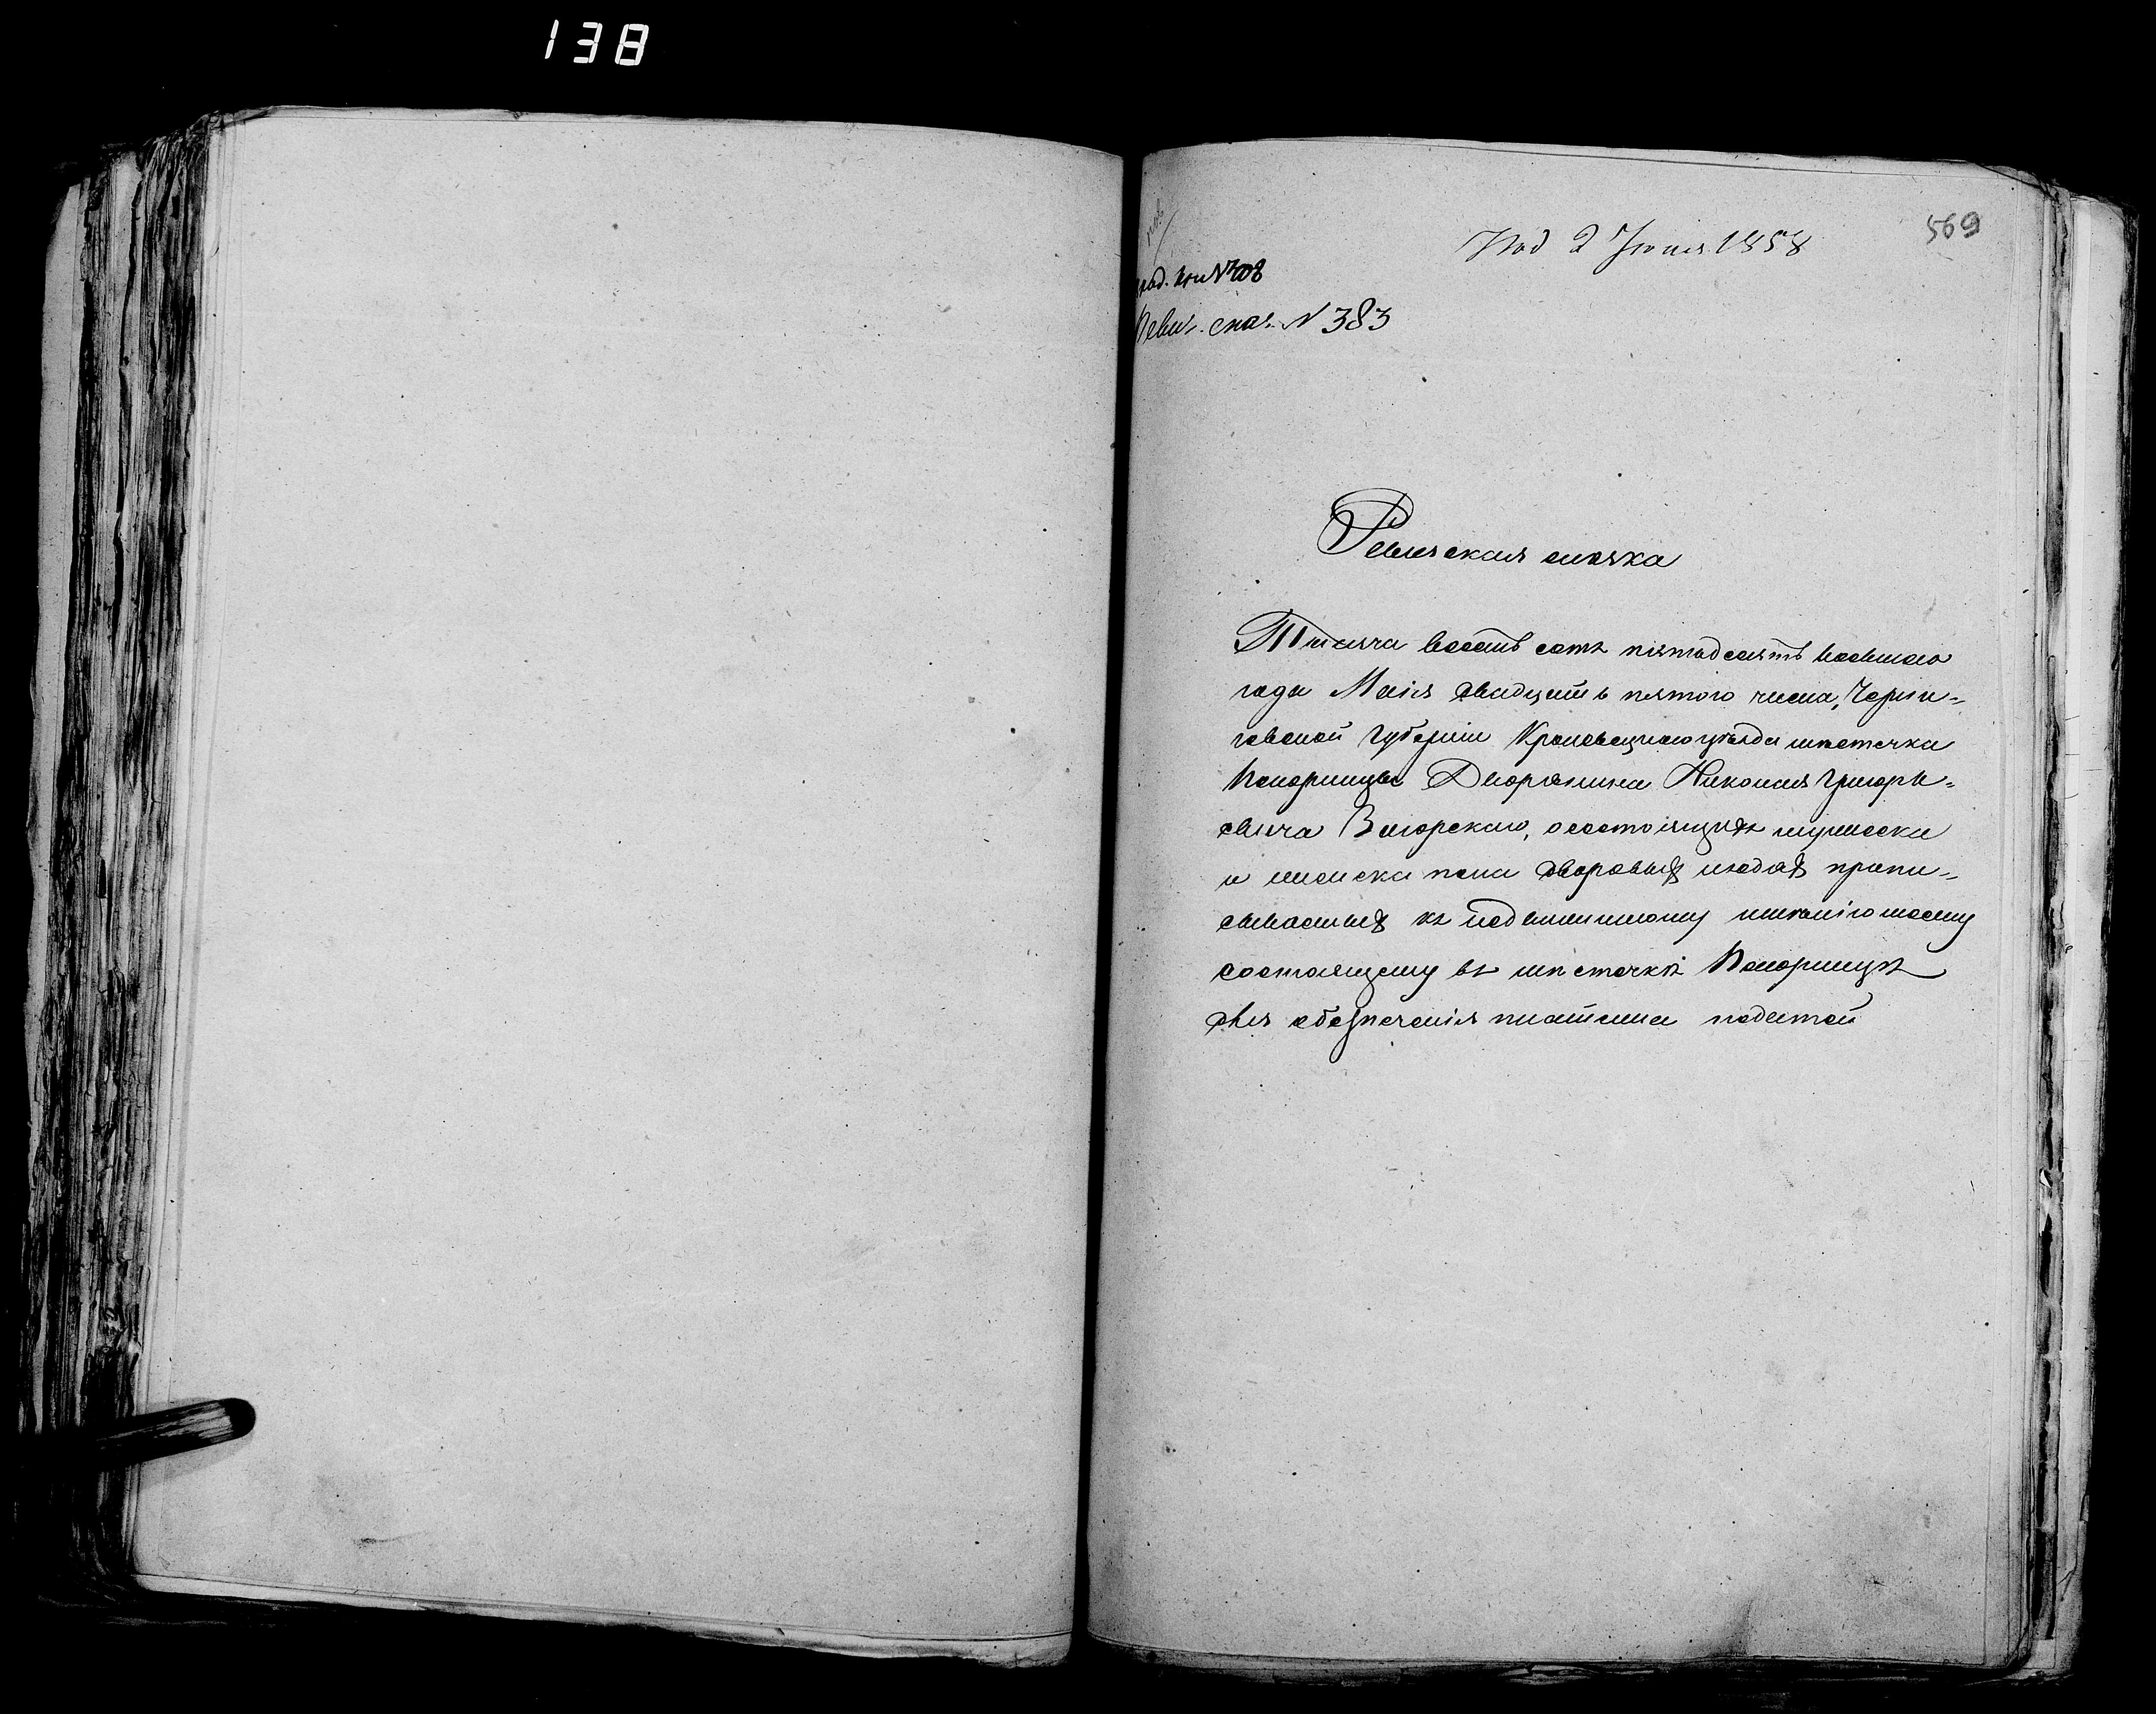 138
569
Под 2 Іюня 1858
№ 708
Ревиз. сказ. № 383
Ревизская сказка
Тысяча восемь сотъ пятьдесятъ восьмаго
года Маія двадцать пятого числа, Черни-
говской Губерніи Кролевецкаго уѣзда мѣстечка
Понорницы Дворянина Николая Григорь-
евича Загорскаго, о состоящихъ мужеска
и женска пола дворовыхъ людяхъ припи-
сываемыхъ къ недвижимому имѣнію моему
состоящему въ мѣстечкѣ Понорницѣ
для обезпеченія платежа податей